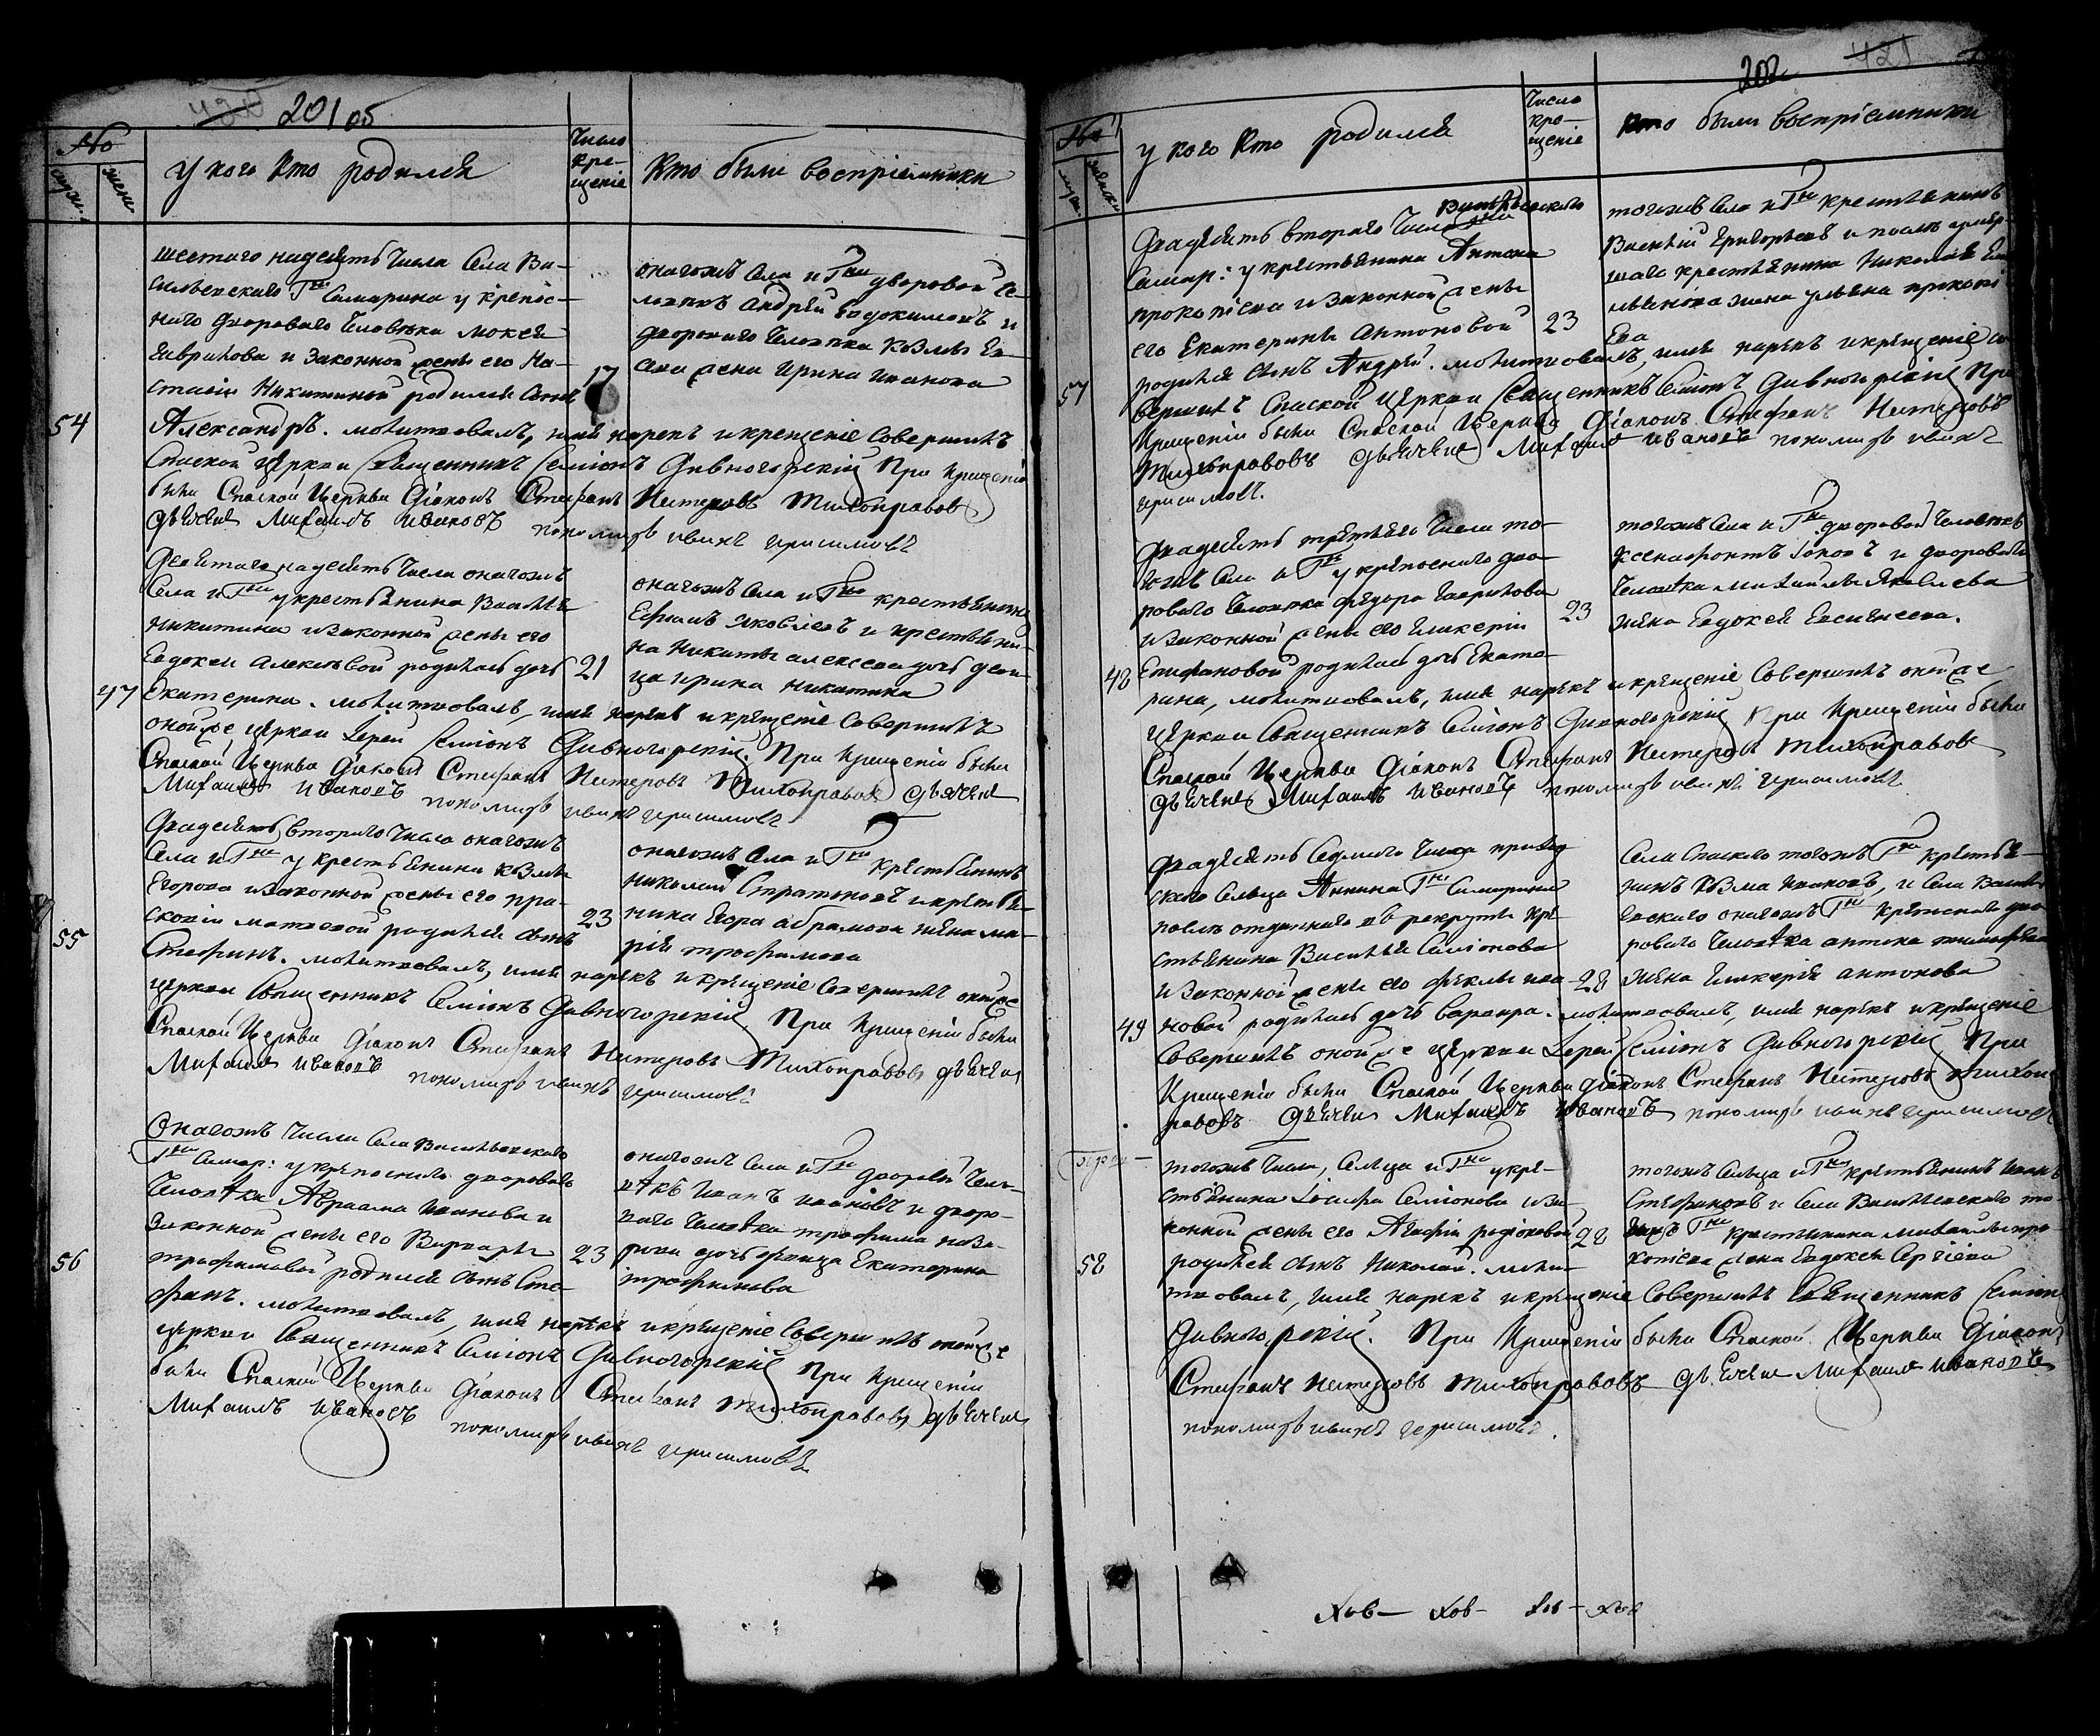 201 об
№
мужи.
женс.
у кого кто родился
Число кре- щеніе
кто были воспріемники
шестаго надесять числа села Ва-
сильевскаго Гна Самарина у крепос-
наго двороваго человека Мокея
Гаврилова и законной жены его На-
стасіи Никитиной родился сынъ
54
17
Александръ. молитвовалъ, имя нарекъ и крещеніе совершилъ
Спаской церкви священникъ Симіонъ Дивногорскій При крещеніи
были Спаской Церкви Діаконъ Стефанъ Нестеровъ Тихонравовъ
дьячекъ Михаилъ Ивановъ пономарь Иванъ Герасимовъ
оногожъ села и Гна дворовой че-
ловекъ Андрей Евдокимовъ и
двороваго человека Козмы
жена Ирина Иванова
девятаго надесять числа оногожъ
села и Гна у крестьянина Василья
Никитина и законной жены его
Евдокеи Алексеевой родилась дочь
47
21
Екатерина. молитвовалъ, имя нарекъ и крещеніе совершилъ
оной же церкви Іерей Симіонъ Дивногорскій. При крещеніи были
Спаской Церкви Діаконъ Стефанъ Нестеровъ Тихонравовъ дьячекъ
Михаилъ Ивановъ пономарь Иванъ Герасимовъ
оногожъ села и Гна крестьянинъ
Ефимъ Яковлевъ и крестьяни-
на Никиты Алексеева дочь деви-
ца Ирина Никитина
двадесять втораго числа оногожъ
села и Гна у крестьянина Козмы
Егорова и законной жены его Пра-
сковіи Матвеевой родился сынъ
55
23
Стефанъ. молитвовалъ, имя нарекъ и крещеніе совершилъ оной же
церкви священникъ Симіонъ Дивногорскій. При крещеніи были
Спаской Церкви Діаконъ Стефанъ Нестеровъ Тихонравовъ дьячекъ
Михаилъ Ивановъ пономарь Иванъ Герасимовъ
оногожъ села и Гна крестьянинъ
Николай Стратоновъ и крестья-
нина Егора Абрамова жена Ма-
рія Трофимова
Оногожъ числа села Васильевскаго
Гна Самар: у крепоснаго двороваго
человека Авраама Иванова и
законной жены его Варвары
56
23
Трофимовой родился сынъ Сте-
фанъ. молитвовалъ, имя нарекъ и крещеніе совершилъ оной же
церкви священникъ Симіонъ Дивногорскій При крещеніи
были Спаской Церкви Діаконъ Стефанъ Тихонравовъ дьячекъ
Михаилъ Ивановъ пономарь Иванъ Герасимовъ
оногожъ села и Гна дворовой чело-
векъ Иванъ Ивановъ и дворо-
ваго человека Трофима Наза-
рова дочь девица Екатерина
Трофимова
202
421
№
у кого кто родился
Число кре- щеніе
кто были воспріемники
двадесять втораго числа Васильевскаго Гна
Самар: у крестьянина Антона
Прокопіева и законной жены
его Екатерины Антоновой
57
23
родился сынъ Андрей. молитвовалъ, имя нарекъ и крещеніе со
вершилъ Спаской церкви священникъ Симіонъ Дивногорскій При
крещеніи были Спаской Церкви Діаконъ Стефанъ Нестеровъ
Тихонравовъ дьячекъ Михаилъ Ивановъ пономарь Иванъ
Герасимовъ.
тогожъ села и Гна крестьянинъ
Василій Григорьевъ и
крестьянина Николая
жена Ульяна Прокопі
ева
двадесять третьяго числа то-
гожъ села и Гна у крепоснаго дво-
роваго человека Федора Гаврилова
и законной жены его Гликеріи
48
23
Епифановой родилась дочь Екате-
рина, молитвовалъ, имя нарекъ и крещеніе совершилъ оной же
церкви священникъ Симіонъ Дивногорскій При крещеніи были
Спаской Церкви Діаконъ Стефанъ Нестеровъ Тихонравовъ
дьячекъ Михаилъ Ивановъ пономарь Иванъ Герасимовъ
тогожъ села и Гна дворовой человекъ
Ксенофонтъ и двороваго
человека Михаилы Яковлева
жена Евдокея Евсигнеева.
двадесять седмаго числа приход
скаго сельца Аннина Гна Самарина
после отданнаго въ рекруты кре
стьянина Василья Симіонова
и законной жены его Феклы Ива-
49
28
новой родилась дочь Варвара. молитвовалъ, имя нарекъ и крещеніе
совершилъ оной же церкви Іерей Симіонъ Дивногорскій При
крещеніи были Спаской Церкви Діаконъ Стефанъ Нестеровъ Тихон
равовъ дьячекъ Михаилъ Ивановъ пономарь Иванъ Герасимовъ
села Спаскаго тогожъ Гна крестья-
нинъ Козма Ивановъ, и села Василь
евскаго оногожъ Гна крепоснаго дво
роваго человека Антона
жена Гликерія Антонова
тогожъ числа, сельца и Гна у кре-
стьянина Іосифа Симіонова и за-
конной жены его Агафіи Родіоновой
58
28
родился сынъ Николай. моли-
твовалъ, имя нарекъ и крещеніе совершилъ священникъ Симіонъ
Дивногорскій. При крещеніи были Спаской Церкви Діаконъ
Стефанъ Нестеровъ Тихонравовъ дьячекъ Михаилъ Ивановъ
пономарь Иванъ Герасимовъ.
тогожъ сельца и Гна крестьянинъ Иванъ
Стефановъ и села Васильевскаго то-
гожъ Гна крестьянина Михаилы Про-
копіева жена Евдокея Сергіева